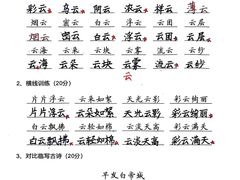 彩云 乌云 阴云 浓云 祥云 薄云
烟云 蜜云 白云 浮云 云团 云层
烟云 密云 白云 浮云 云团 云层
云海 云朵 云块 云雾 流云 云纱
云海 云朵 云块 云雾 流云 云纱
云
2、横线训练（20分）
片片浮云 云朵如絮 天光云影 彩云绚丽
片片浮云 云朵如絮 天光云影 彩云绚丽
白云飘拂 云轻如棉 云淡天高 彩云满天
白云飘拂 云轻如棉 云淡天高 彩云满天
3、对比临写古诗（20分）
早发白帝城